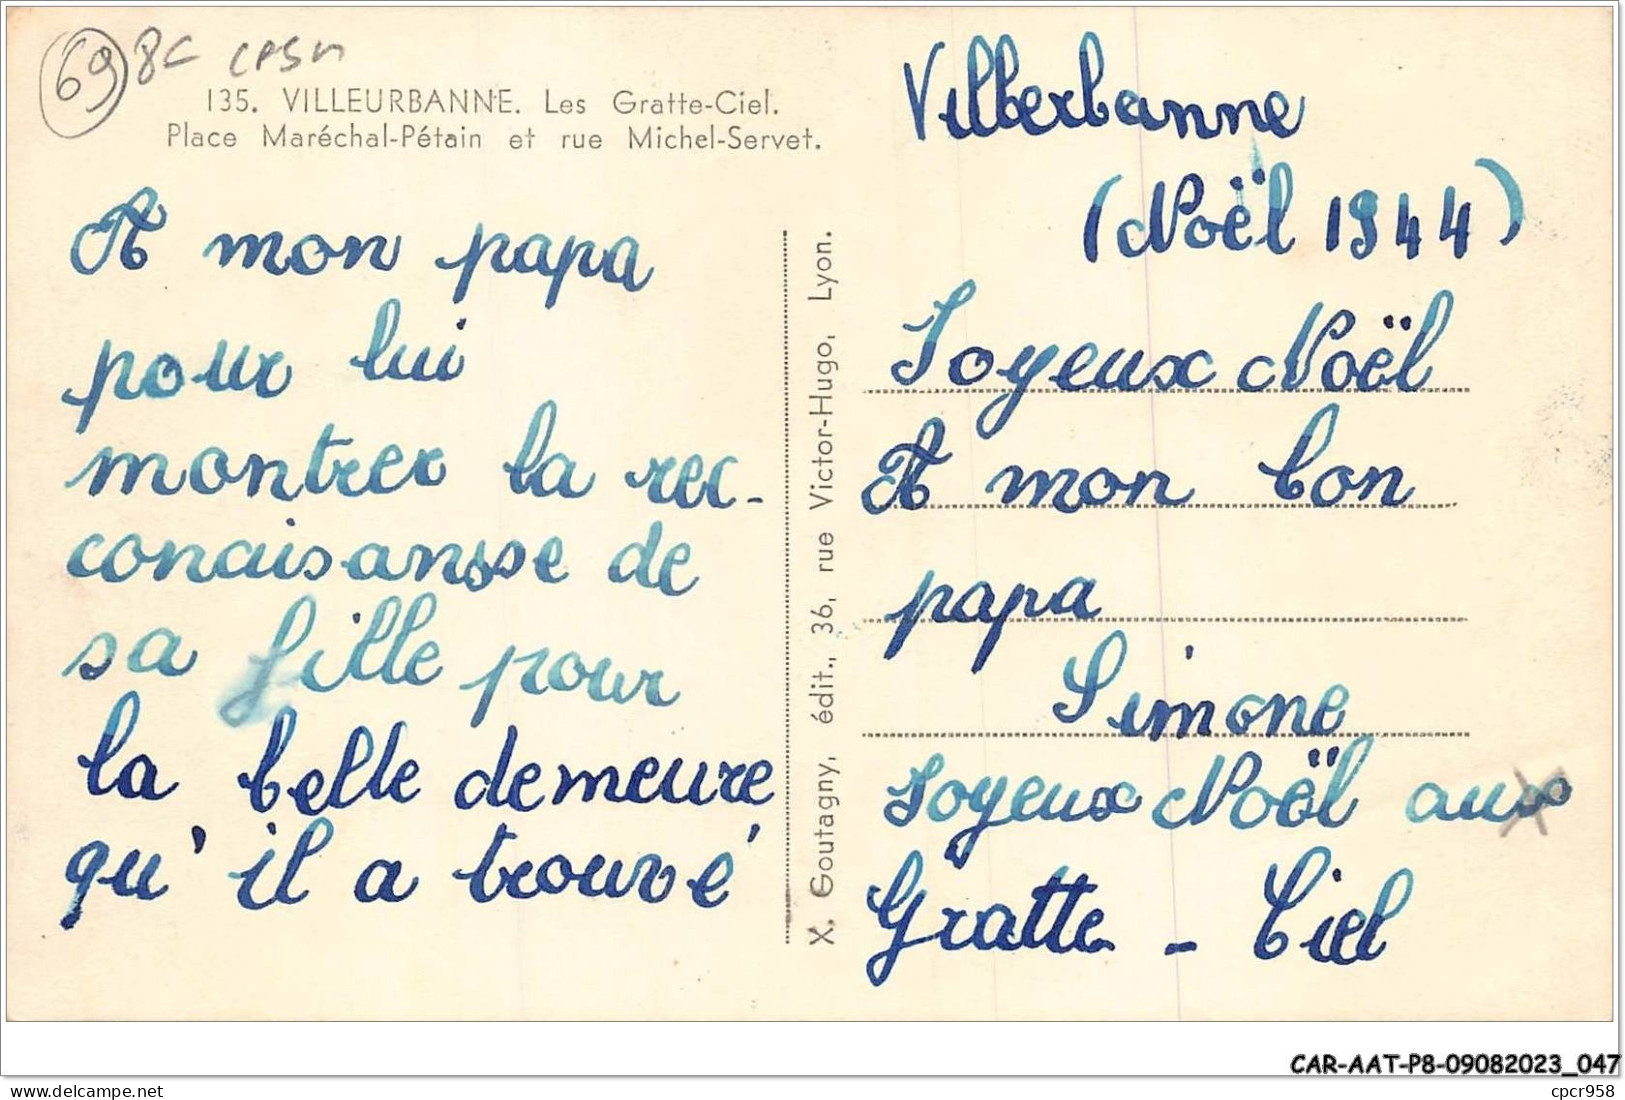 69 8€ CPSM
135. VILLEURBANNE. Les Gratte-Ciel.
Place Maréchal-Pétain et rue Michel-Servet.
A mon papa
pour lui
montrer la rec-
conaisansse de
sa fille pour
la belle demeure
qu'il a trouvé
X. Goutagny, édit., 36, rue Victor-Hugo, Lyon.
Villberbanne
(Noël 1944)
Joyeux Noël
A mon bon
papa
Simone
Joyeux Noël aux
Gratte - Ciel
CAR-AAT-P8-09082023_047
cpcr958